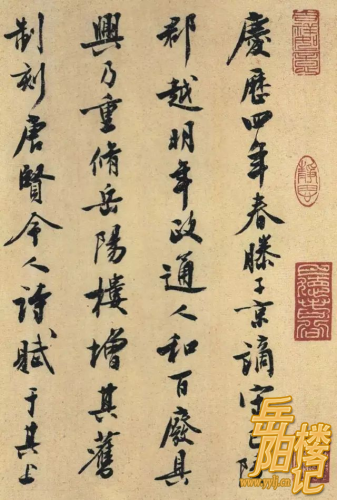 慶歷四年春滕子京謫守巴陵
郡越明年政通人和百廢具
興乃重脩岳陽樓增其舊
制刻唐賢今人詩賦于其上
岳阳楼记
www.yylj.cn